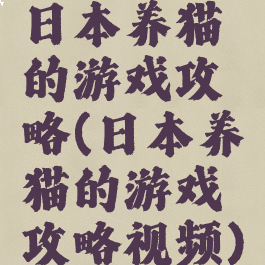 日本养猫
的游戏攻
略(日本养
猫的游戏
攻略视频)